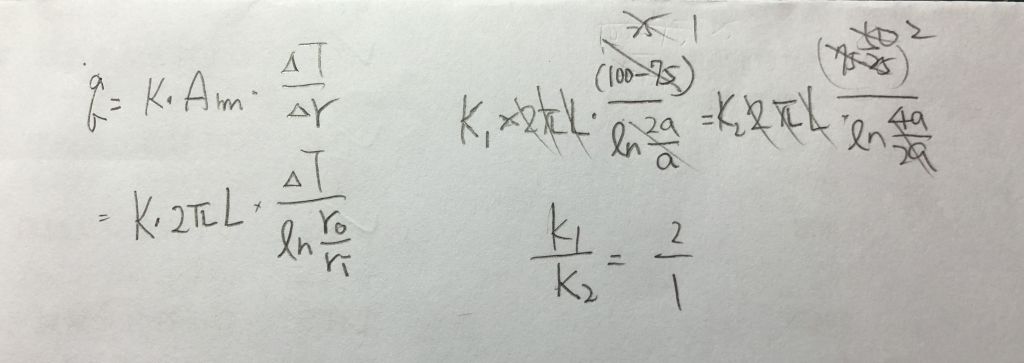 q̇ = K · Am · ΔT / Δr
= K · 2πL × ΔT / ln ro/ri
K₁ × 2πL · (100-75) 1 / ln 2a/a = K₂ 2πL · (75-25) 50 2 / ln 4a/2a
k₁/k₂ = 2/1